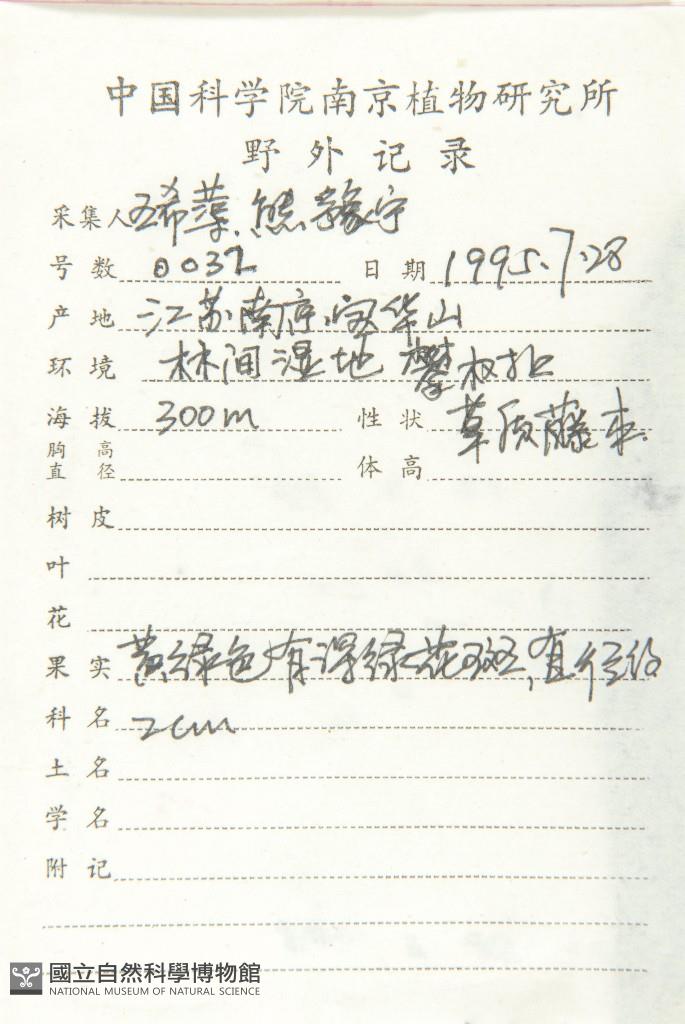 中国科学院南京植物研究所
野外记录
采集人 王希蕖、熊豫宁
号数 0032 日期 1995.7.28
产地 江苏南京、宝华山
环境 林间湿地 攀
海拔 300m 性状 草质藤本
胸高直径 体高
树皮
叶
花
果实 黄绿色有深绿花斑,直径约
科名 2cm
土名
学名
附记
國立自然科學博物館
NATIONAL MUSEUM OF NATURAL SCIENCE